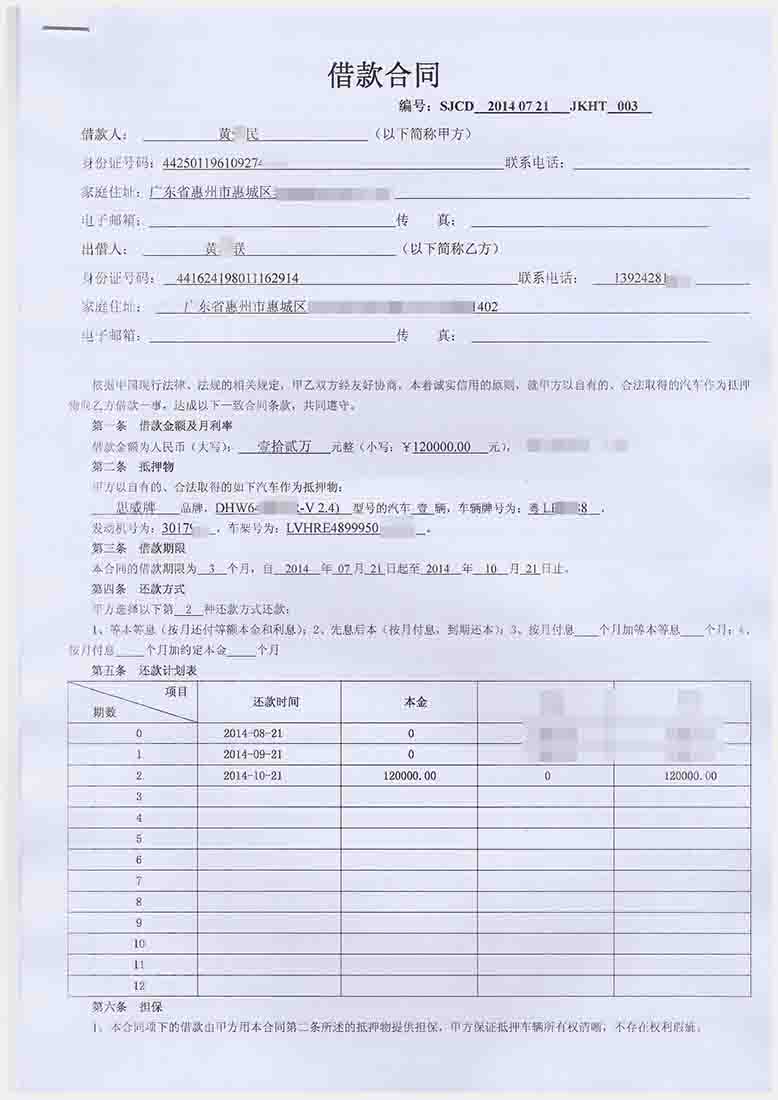 借款合同
编号：SJCD 2014 07 21 JKHT 003
借款人： 黄 民 （以下简称甲方）
身份证号码：44250119610927 联系电话：
家庭住址：广东省惠州市惠城区
电子邮箱： 传 真：
出借人： 黄 （以下简称乙方）
身份证号码： 441624198011162914 联系电话： 13924281
家庭住址： 广东省惠州市惠城区 1402
电子邮箱： 传 真：
依据中国现行法律、法规的相关规定，甲乙双方经友好协商，本着诚实信用的原则，就甲方以自有的、合法取得的汽车作为抵押
物向乙方借款一事，达成以下一致合同条款，共同遵守。
第一条 借款金额及月利率
借款金额为人民币（大写）： 壹拾贰万 元整（小写：￥120000.00 元），
第二条 抵押物
甲方以自有的、合法取得的如下汽车作为抵押物：
思威牌 品牌，DHW6 -V 2.4) 型号的汽车 壹 辆，车辆牌号为：粤 L 8 ，
发动机号为：3017 ，车架号为：LVHRE4899950 。
第三条 借款期限
本合同的借款期限为 3 个月，自 2014 年 07 月 21 日起至 2014 年 10 月 21 日止。
第四条 还款方式
甲方选择以下第 2 种还款方式还款：
1、等本等息（按月还付等额本金和利息）；2、先息后本（按月付息，到期还本）；3、按月付息____个月加等本等息____个月；4、
按月付息____个月加约定本金____个月
第五条 还款计划表
项目
期数 还款时间 本金
0 2014-08-21 0
1 2014-09-21 0
2 2014-10-21 120000.00 0 120000.00
3
4
5
6
7
8
9
10
11
12
第六条 担保
1、本合同项下的借款由甲方用本合同第二条所述的抵押物提供担保，甲方保证抵押车辆所有权清晰，不存在权利瑕疵。